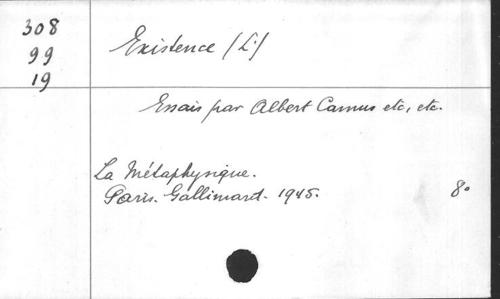 308
99
19
Existence (L')
Essais par Albert Camus etc, etc.
La Métaphysique.
Paris. Gallimard. 1945. 8°